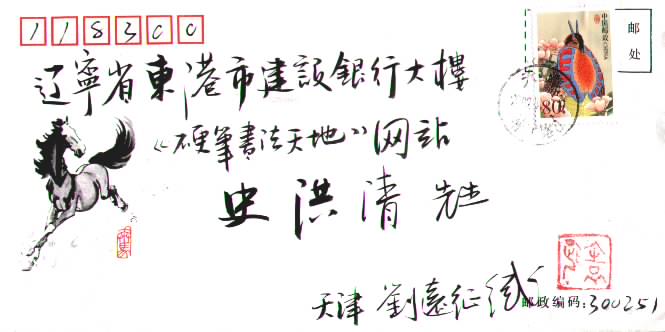 118300
中国邮政
80分
邮
处
辽寧省東港市建設銀行大樓
《硬筆書法天地》网站
史洪清 先生
天津 劉遠征缄
邮政编码:300251